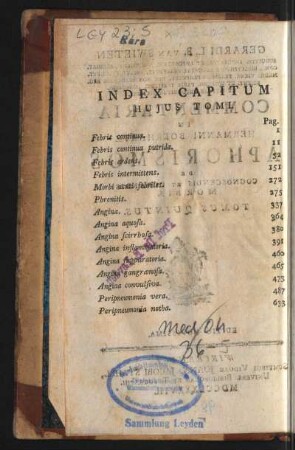 LGY 23, 5
Rara
INDEX CAPITUM
HUJUS TOMI
Pag.
Febris continua. 1
Febris continua putrida. 11
Febris ardens. 52
Febris intermittens. 151
Morbi acuti febriles. 272
Phrenitis. 273
Angina. 337
Angina aquosa. 364
Angina scirrhosa. 380
Angina inflammatoria. 391
Angina suppuratoria. 460
Angina gangrænosa. 465
Angina convulsiva. 473
Peripneumonia vera. 487
Peripneumonia notha. 633
Sammlung Leyden